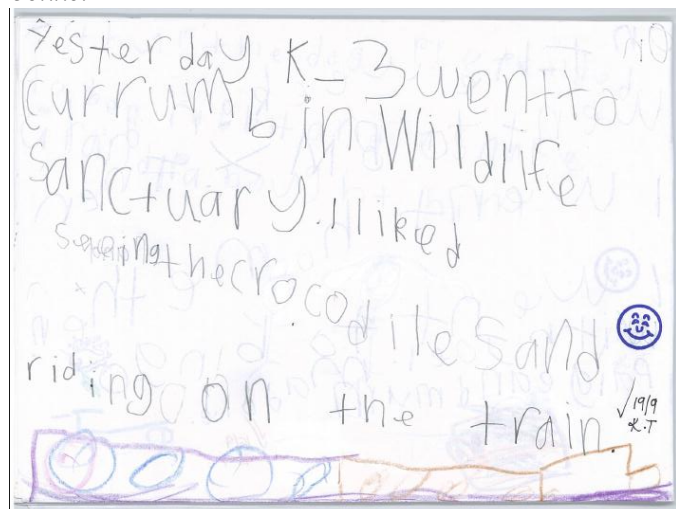 Yesterday K-3 wentto
Currumbin Wildlife
Sanctuary. I liked
seeing the crocodiles and
riding on the train.
√ 19/9
K.T